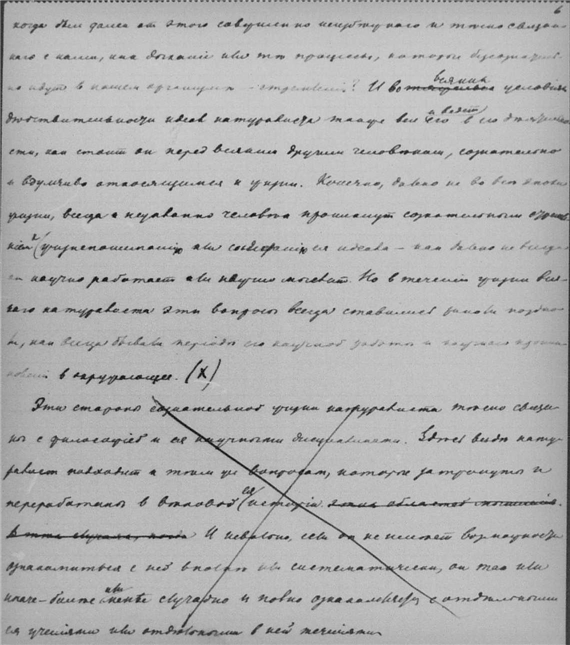 6
когда был далек от этого совершенно неизбежного и тесно связан-
ного с нами, как дыхание или те процессы, которые бессознатель-
но идут в нашем организме
всяких
И в условиях
действительности идеал натуралиста также вел его в его деятельно-
и ведет
сти, как стоит он перед всяким другим человеком, сознательно
и вдумчиво относящимся к жизни. Конечно, далеко не во все эпохи
жизни, всегда и неуклонно человек проникнут сознательным
жизнепониманием или идеала – как далеко не всегда
он научно работает или научно мыслит. Но в течении жизни вся-
кого натуралиста эти вопросы всегда ставились рано или поздно
как всегда бывали периоды его научной работы и научного проник-
новения в окружающее. (X)
Эти стороны сознательной жизни натуралиста тесно связа-
ны с философией и ее научными дисциплинами. Здесь ведь нату-
ралист подходит к тем же вопросам, которые затронуты и
переработаны в вековой ея истории этих областей мышления.
В этих случаях, когда И невольно, если он не имеет возможности
ознакомиться с ней вполне или систематически, он так или
иначе – более или менее случайно и неполно ознакомляется с отдельными
ея учениями или отдельными в ней течениями